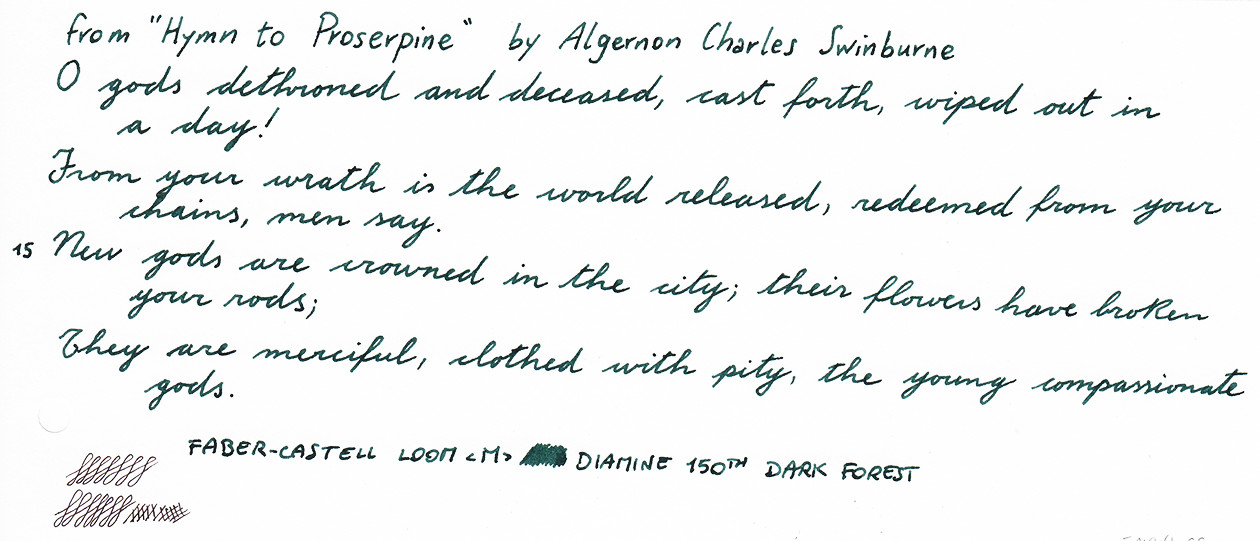 from "Hymn to Proserpine" by Algernon Charles Swinburne
O gods dethroned and deceased, cast forth, wiped out in
a day!
From your wrath is the world released, redeemed from your
chains, men say.
15 New gods are crowned in the city; their flowers have broken
your rods;
They are merciful, clothed with pity, the young compassionate
gods.
FABER-CASTELL LOOM <M> DIAMINE 150TH DARK FOREST